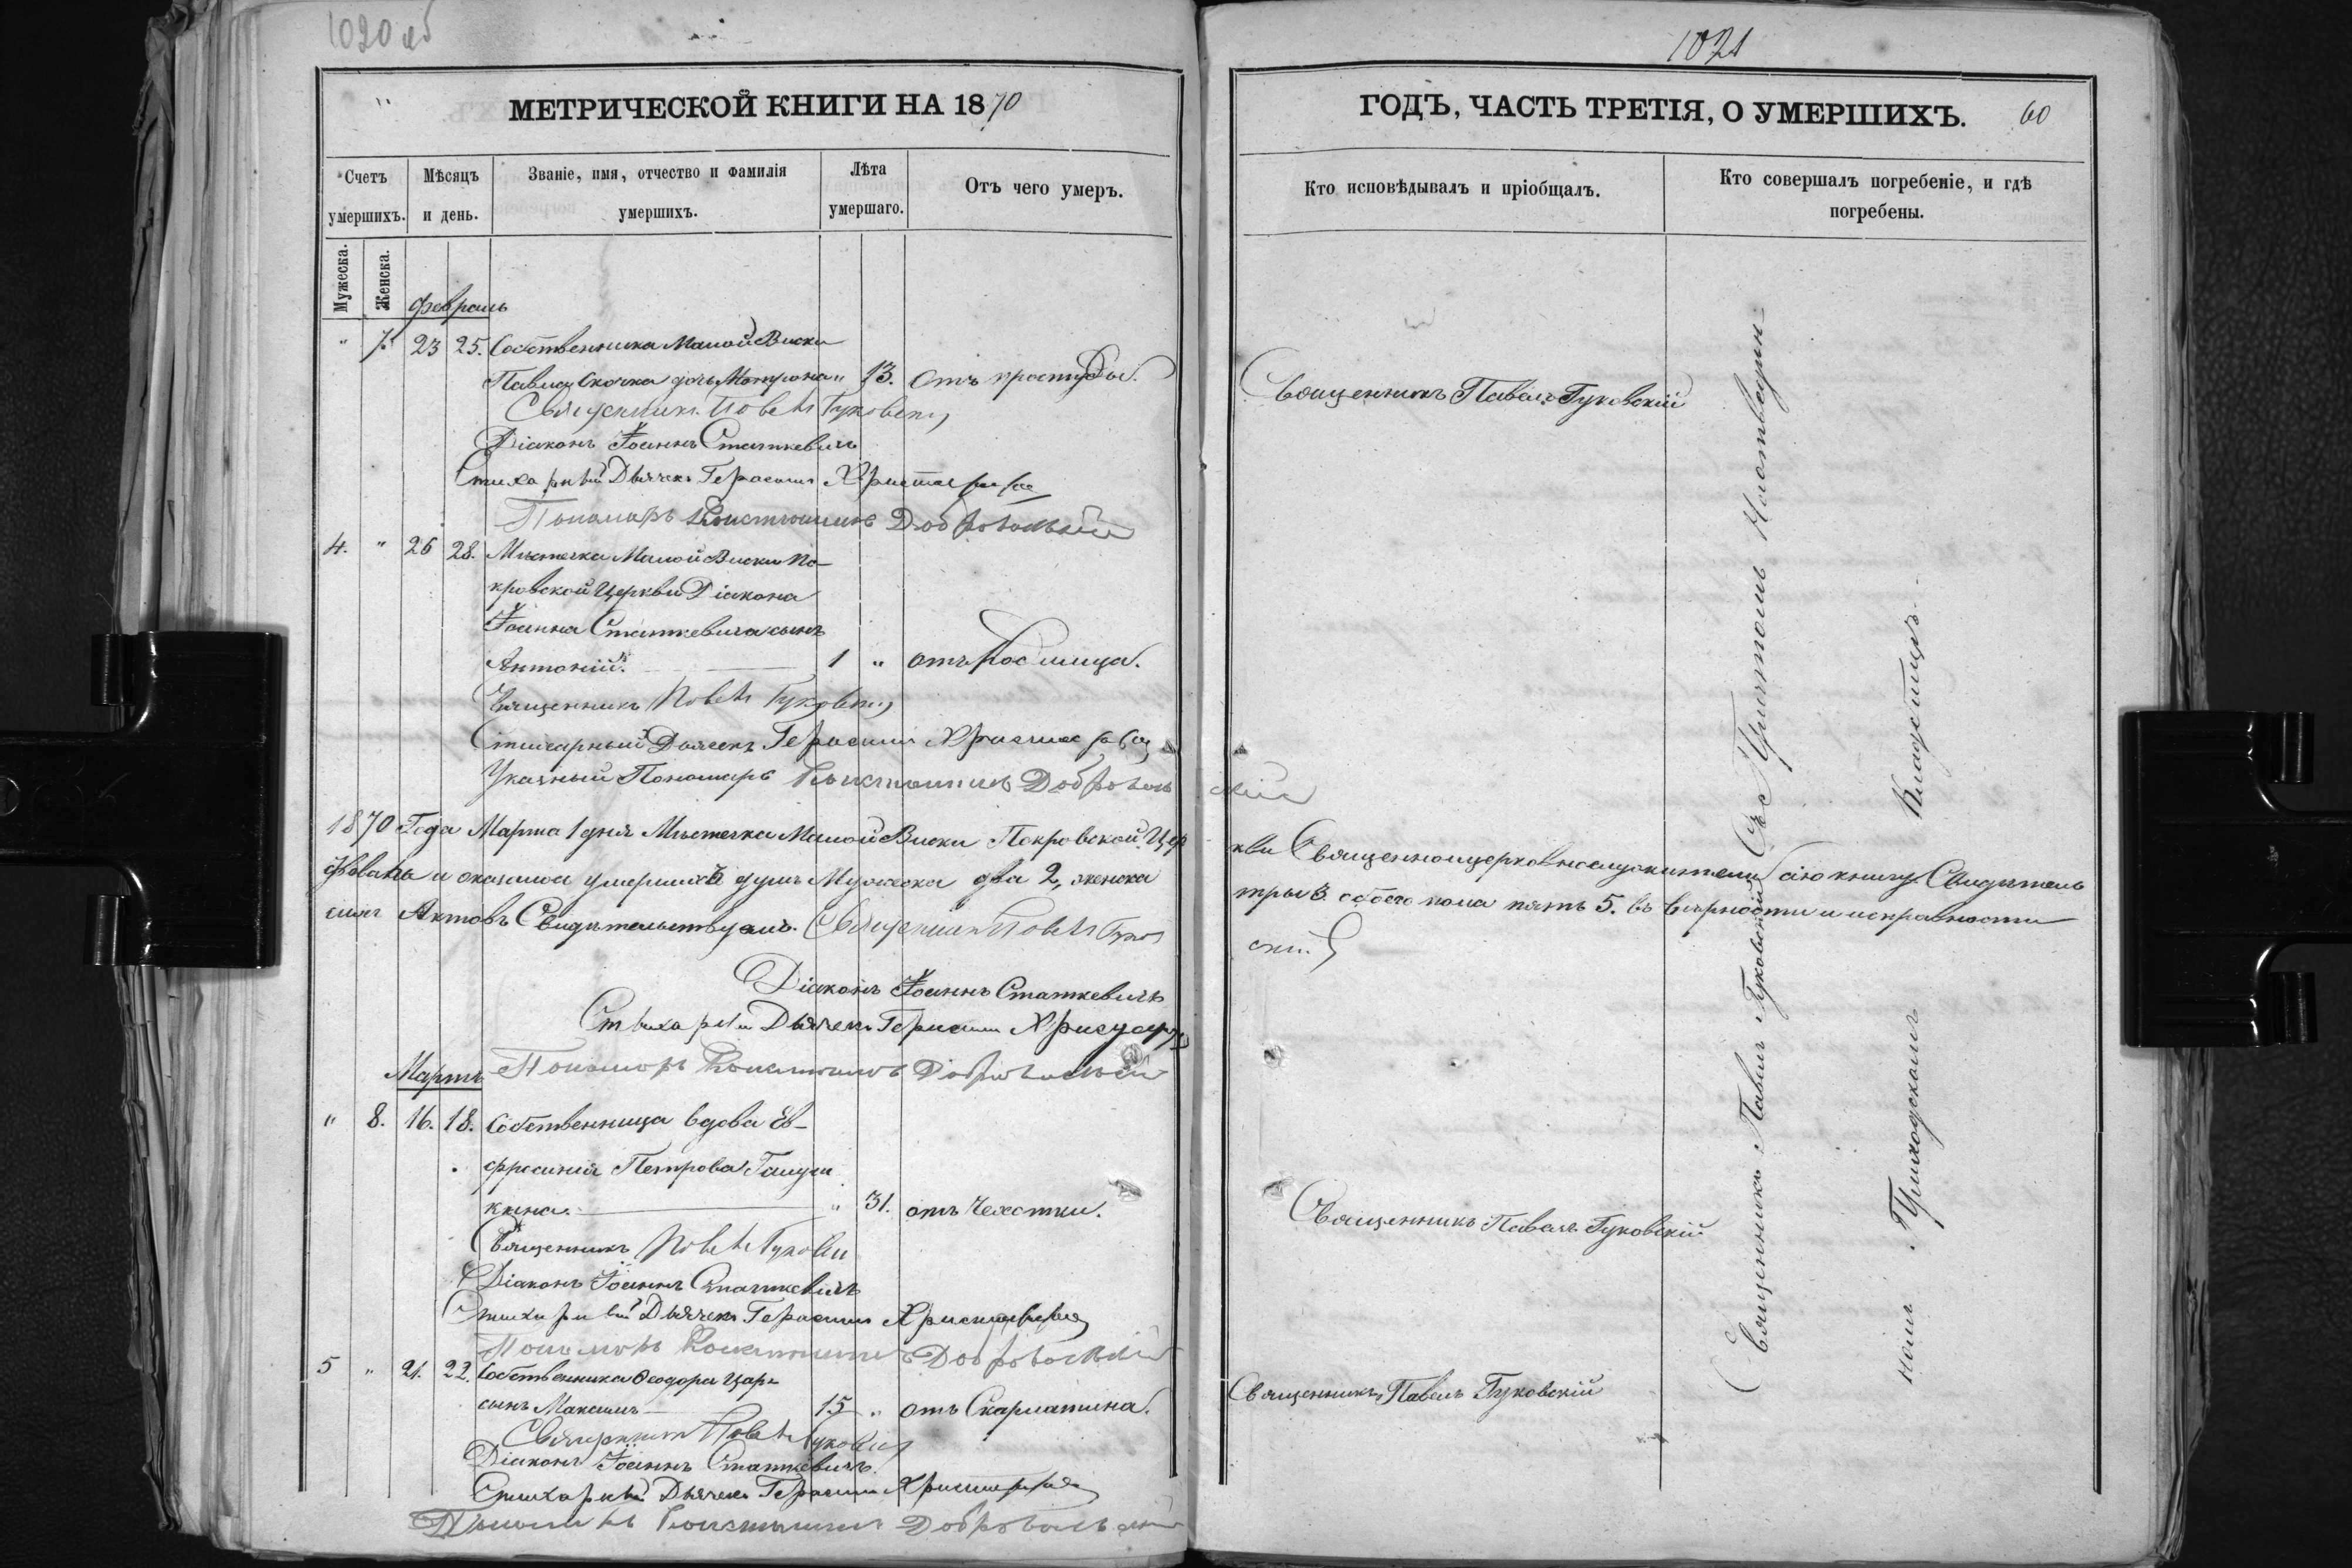 1020 об
МЕТРИЧЕСКОЙ КНИГИ НА 1870
Счетъ умершихъ.
Мѣсяцъ и день.
Званіе, имя, отчество и фамилія умершихъ.
Лѣта умершаго.
Отъ чего умеръ.
Мужеска.
Женска.
Февраль
" 7. 23 25. Собственника Малой Виски
Павла Скочка дочь Матрона " 13. Отъ простуды.
Священникъ Павелъ Гуковскій
Діаконъ Іоаннъ Статкевичъ
Стихарный Дьячекъ Герасимъ
Пономарь Константинъ Добровольскій
4. " 26 28. Мѣстечка Малой Виски По-
кровской Церкви Діакона
Іоанна Статкевича сынъ
Антоній. 1 " отъ родимца.
Священникъ Павелъ Гуковскій
Стихарный Дьячекъ Герасимъ
Указный Пономарь Константинъ Доброволь
1870 Года Марта 1 дня Мѣстечка Малой Виски Покровской Цер
и оказалось умершихъ душъ Мужеска два 2, женска
Актовъ Свидѣтельствуемъ. Священникъ Павелъ Гуков
Діаконъ Іоаннъ Статкевичъ
Стихарный Дьячекъ Герасимъ
Мартъ Пономарь Константинъ Добровольскій
" 8. 16. 18. Собственница вдова Ев-
фросинія Петрова Галуш
кина. " 31. отъ Чахотки.
Священникъ Павелъ Гуковскій
Діаконъ Іоаннъ Статкевичъ
Стихарный Дьячекъ Герасимъ
Пономарь Константинъ Добровольскій
5 " 21. 22. Собственника Ѳеодора Царь
сынъ Максимъ 15 " отъ Скарлатина.
Священникъ Павелъ Гуковскій
Діаконъ Іоаннъ Статкевичъ.
Стихарный Дьячекъ Герасимъ
Пономарь Константинъ Добровольскій
1021
ГОДЪ, ЧАСТЬ ТРЕТІЯ, О УМЕРШИХЪ. 60
Кто исповѣдывалъ и пріобщалъ.
Кто совершалъ погребеніе, и гдѣ погребены.
Священникъ Павелъ Гуковскій
скій
кви Священноцерковнослужители сію книгу Свидѣтель
три 3. обоего пола пять 5. въ вѣрности и исправности
скій
Священникъ Павелъ Гуковскій
Священникъ Павелъ Гуковскій
Священникъ Павелъ Гуковскій Съ Причтомъ На
номъ Приходскомъ Кладбищѣ.